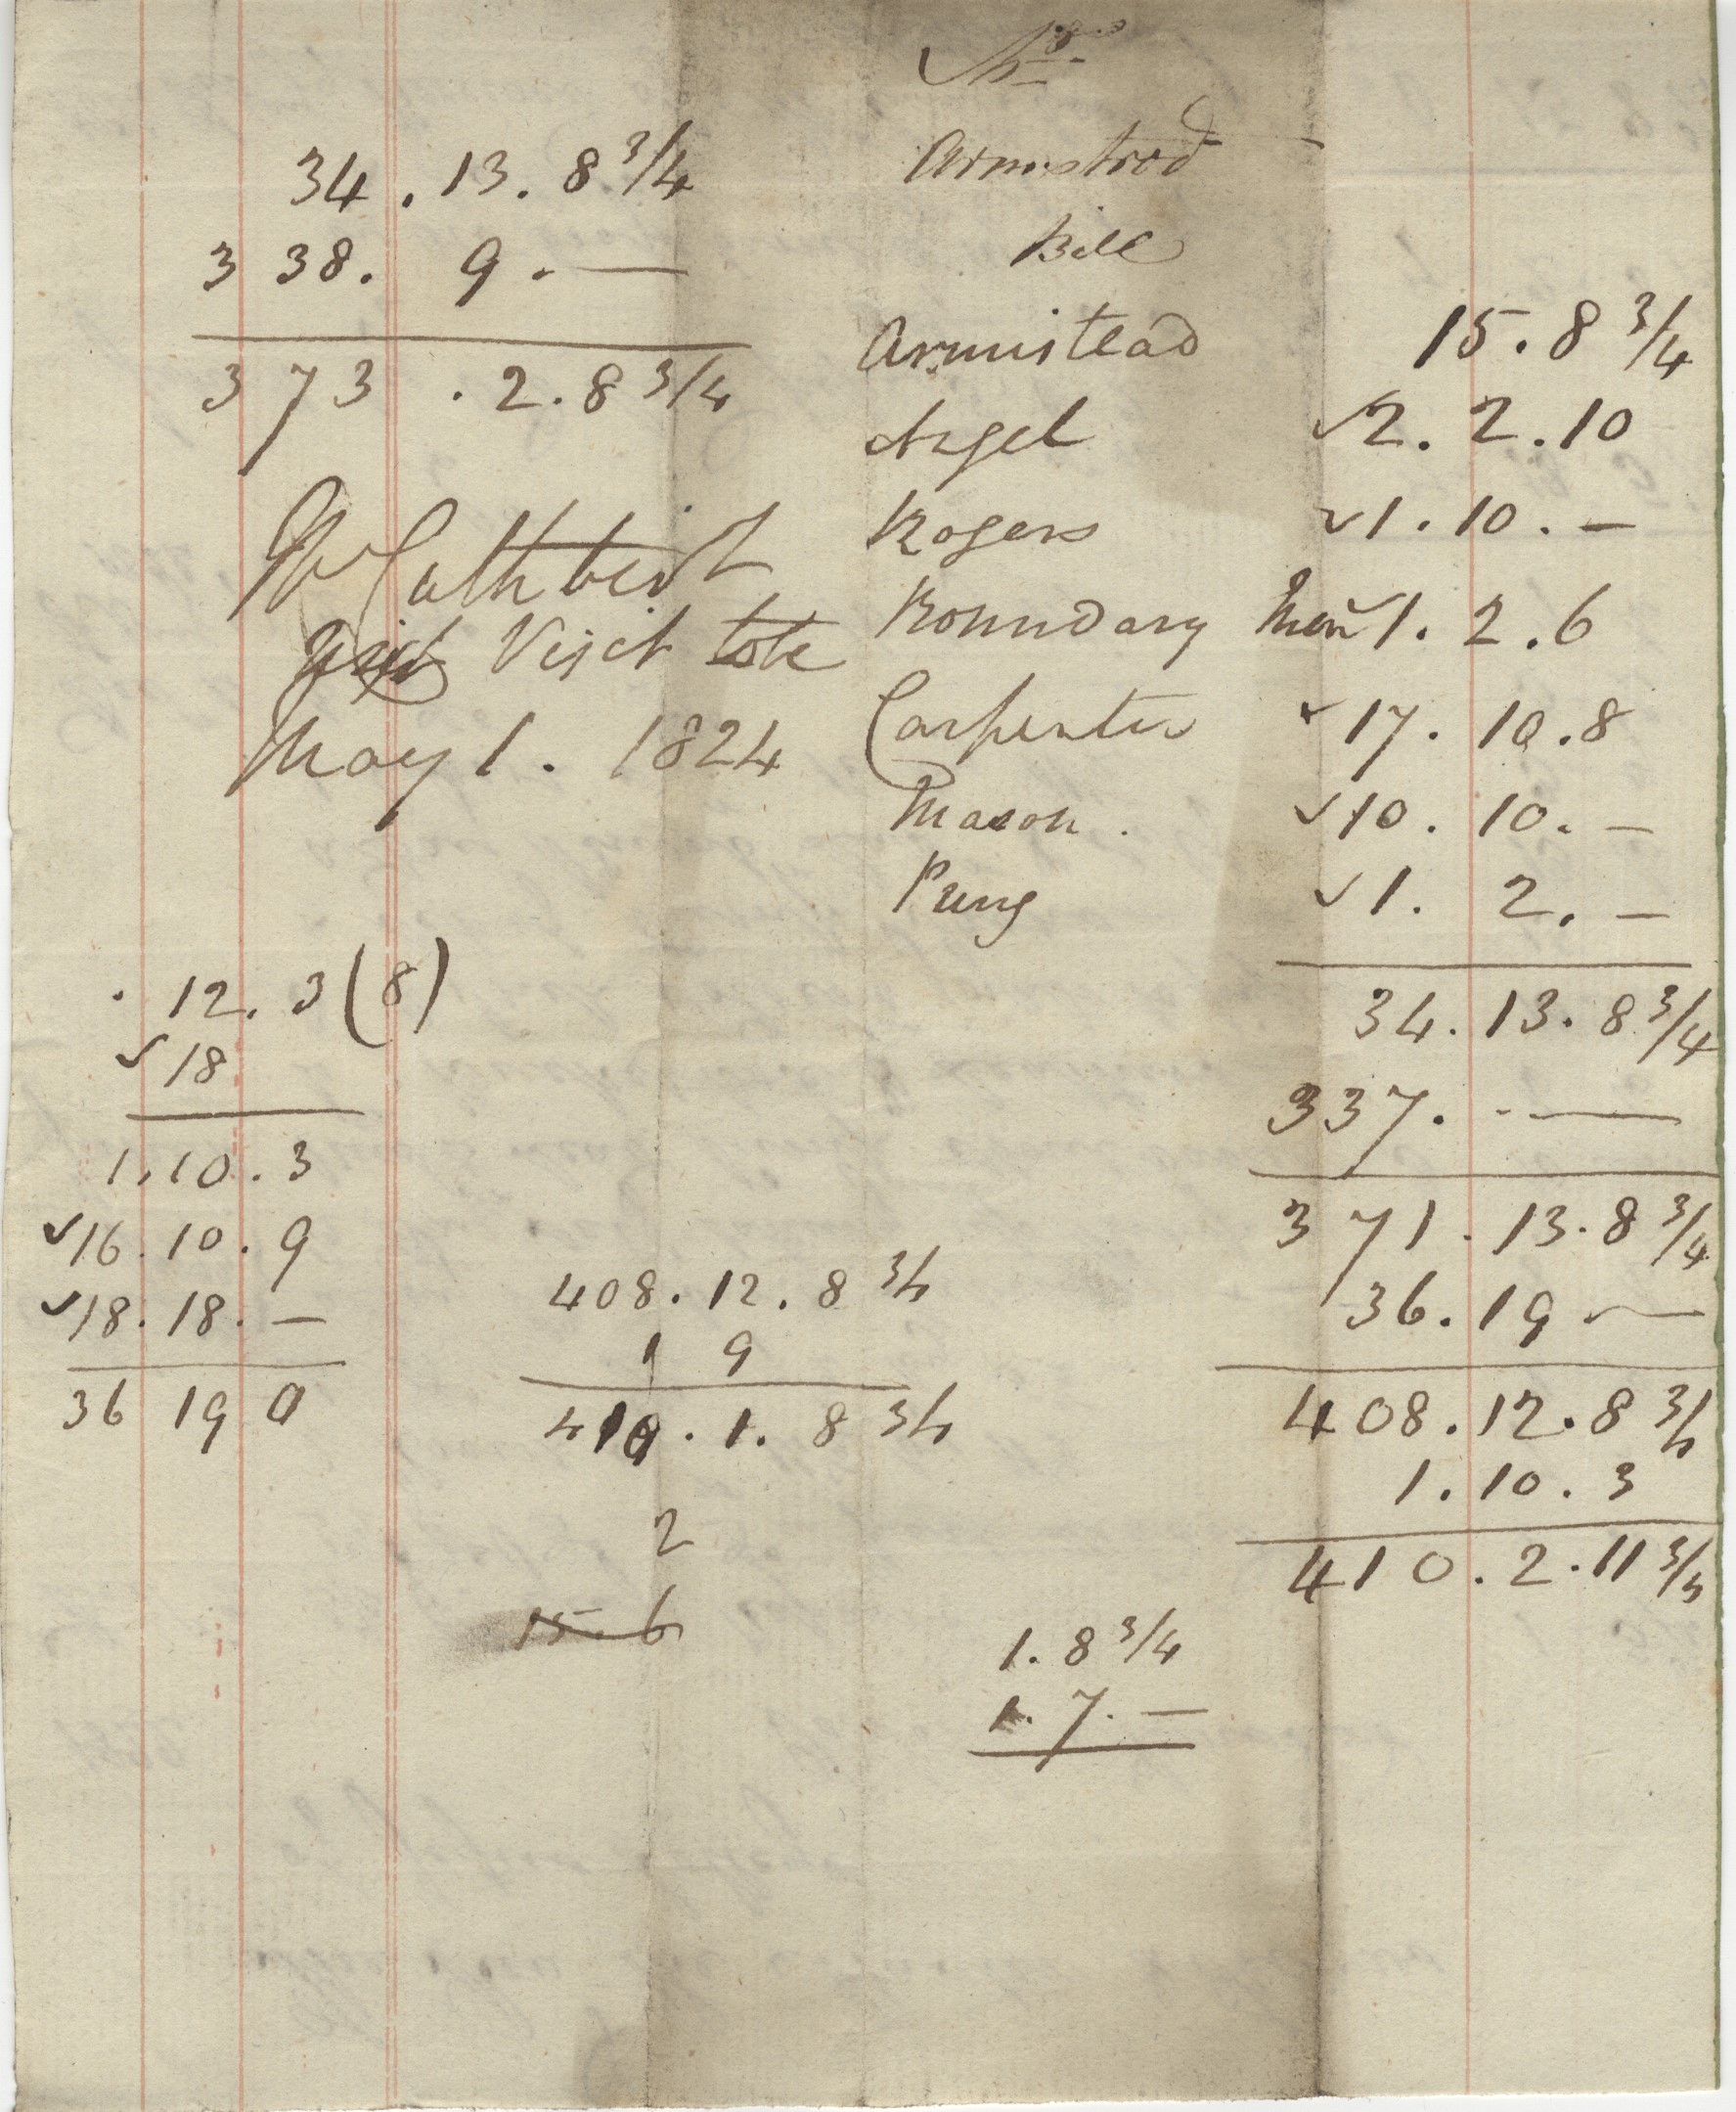 34 . 13 . 8 3/4
338 . 9 . —
373 . 2 . 8 3/4
Cuthbert
Visit tote
May 1 . 1824
12 . 3 (8)
✓ 18
1 . 10 . 3
✓ 16 . 10 . 9
✓ 18 . 18 . —
36 19 0
408 . 12 . 8 3/4
1 9
410 . 1 . 8 3/4
2
15 . 6
Armistrod
Bill
Armistead 15 . 8 3/4
Angel ✓ 2 . 2 . 10
Rogers ✓ 1 . 10 . —
Boundary Men ✓ 1 . 2 . 6
Carpenter ✓ 17 . 10 . 8
Mason . ✓ 10 . 10 . —
Pung ✓ 1 . 2 . —
34 . 13 . 8 3/4
337 . - —
371 . 13 . 8 3/4
36 . 19 —
408 . 12 . 8 3/4
1 . 10 . 3
410 . 2 . 11 3/4
1 . 8 3/4
1 . 7 . —